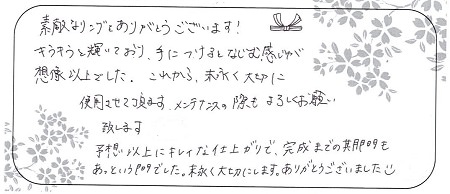 素敵なリングをありがとうございます!
キラキラと輝いており、手につけるとなじむ感じが
想像以上でした。これから、末永く大切に
使用させて頂きます。メンテナンスの際もよろしくお願い
致します
予想以上にキレイな仕上がりで、完成までの期間も
あっという間でした。末永く大切にします。ありがとうございました